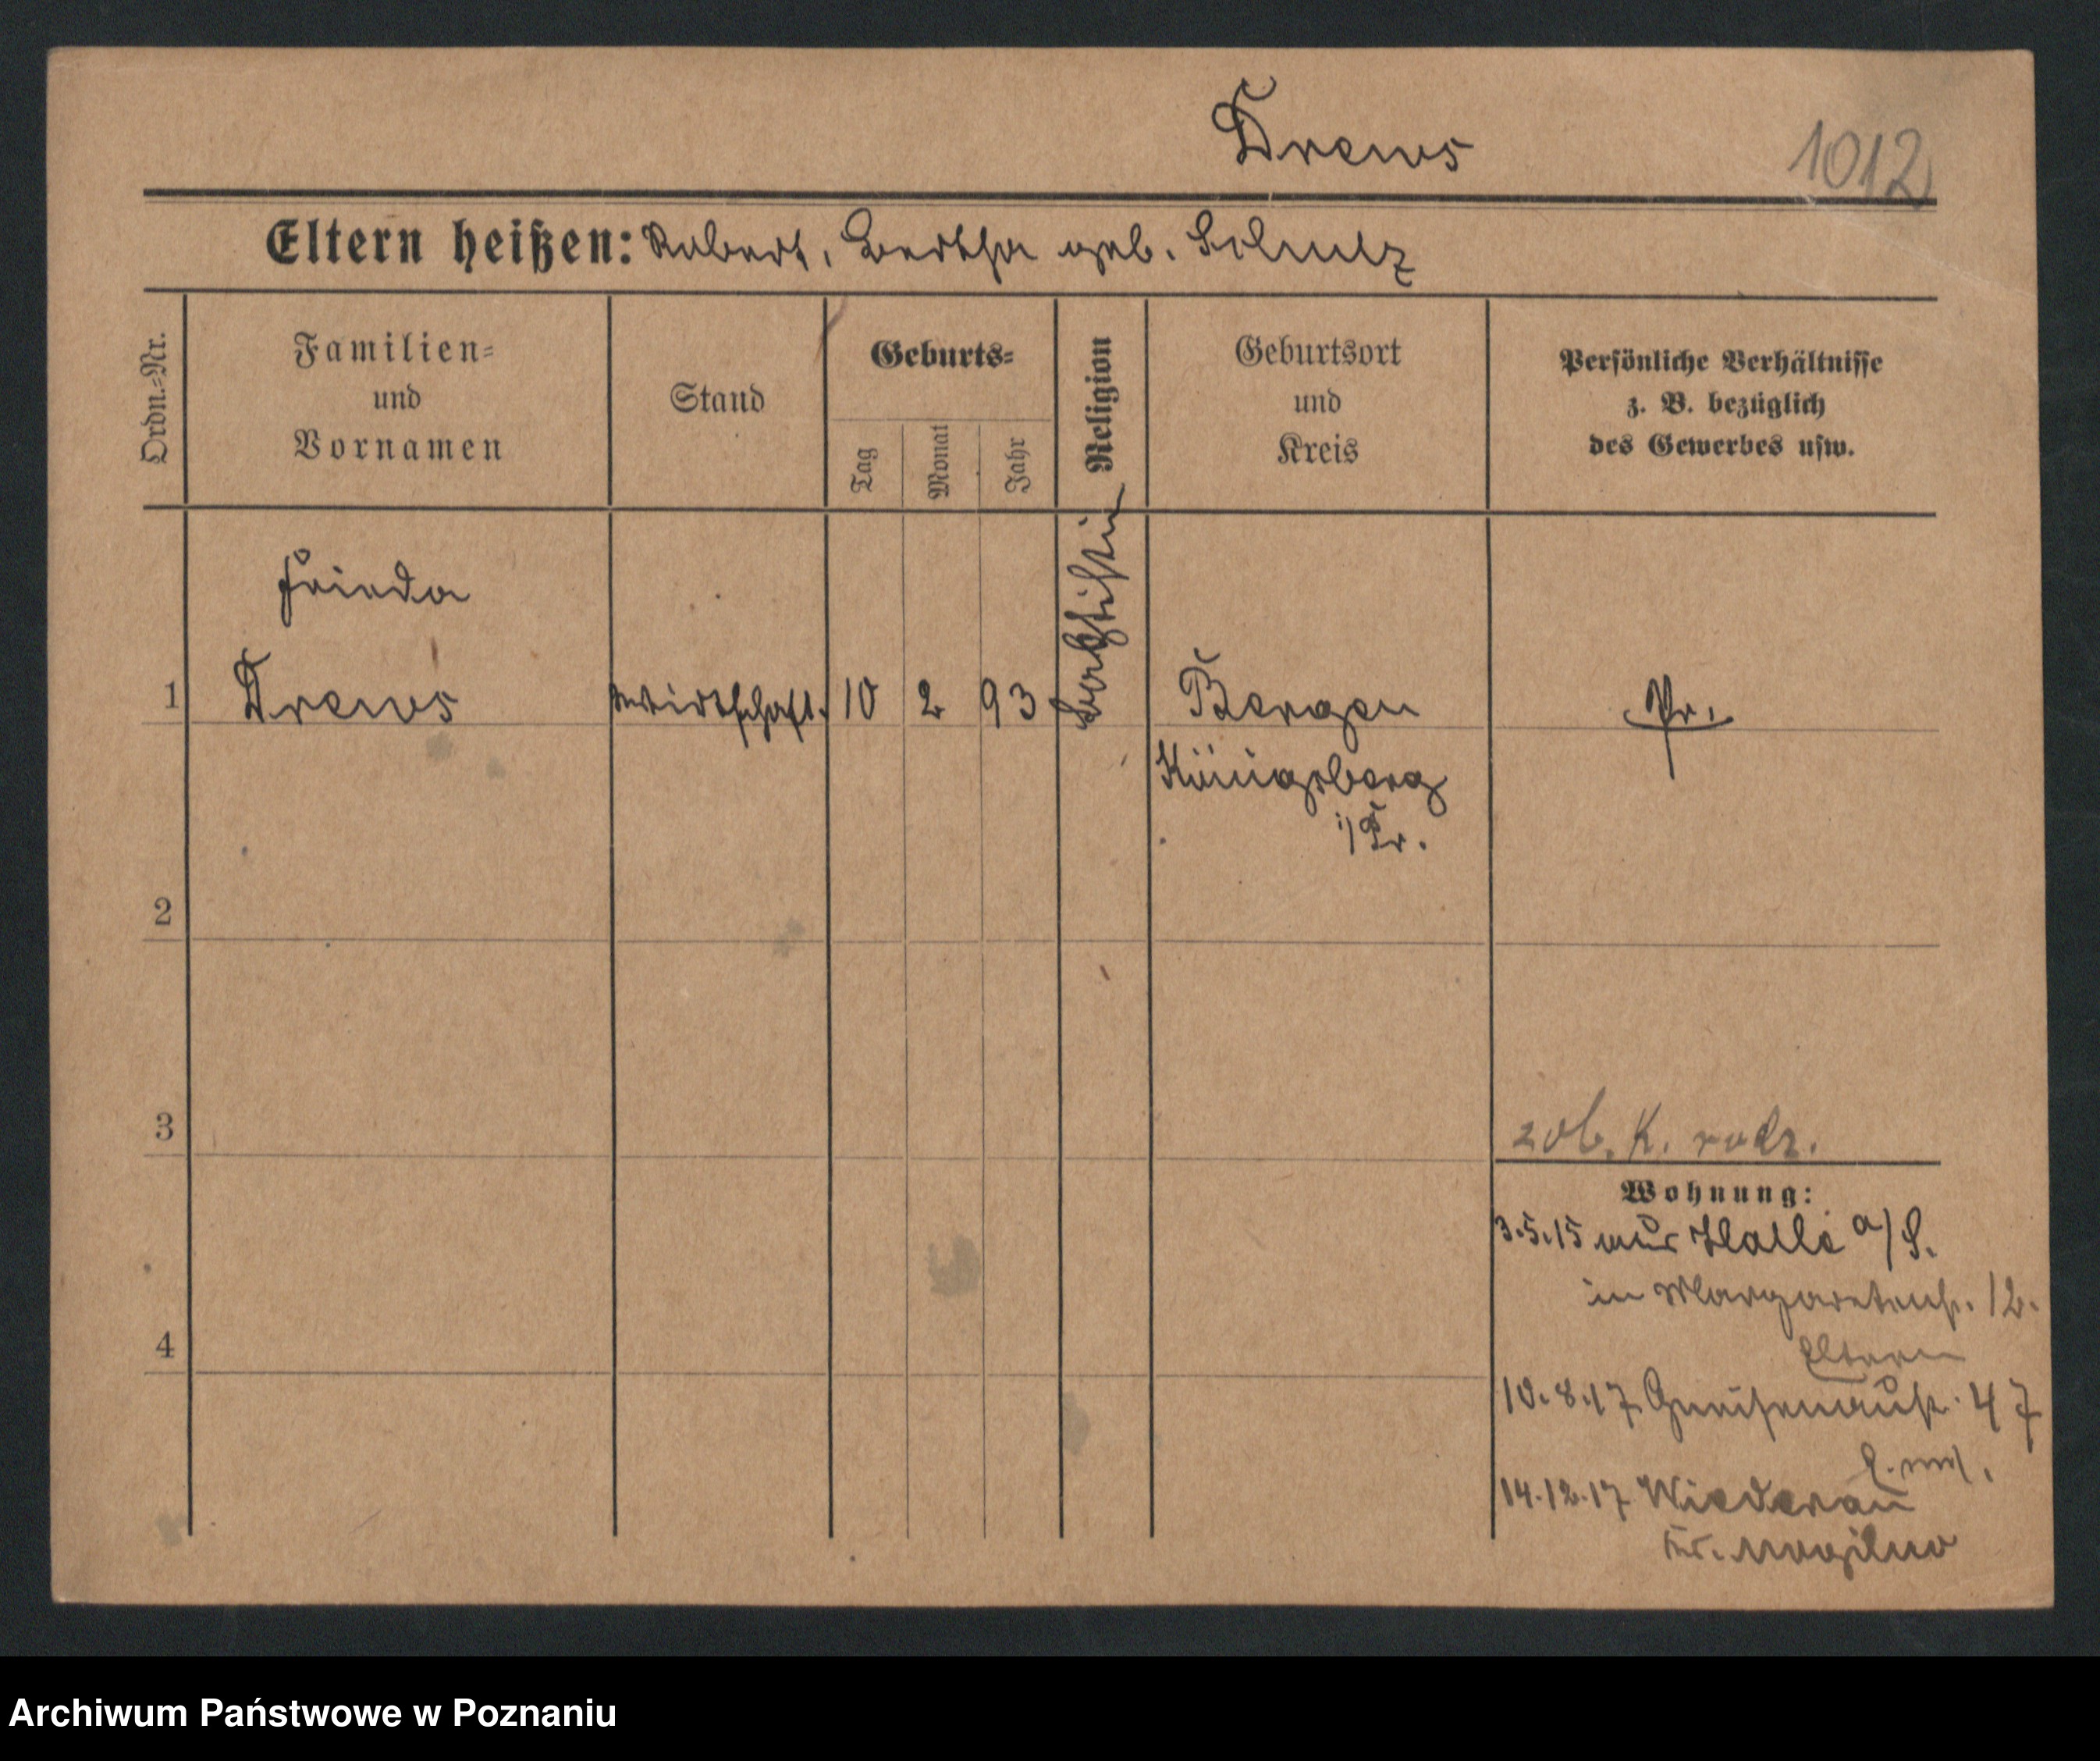 Drews
1012
Eltern heißen: Robert, Bertha geb. Schulz
Ordn.=Nr.
Familien=
und
Vornamen
Stand
Geburts=
Tag
Monat
Jahr
Religion
Geburtsort
und
Kreis
Persönliche Verhältnisse
z. B. bezüglich
des Gewerbes usw.
Frieda
1 Drews Wirtschaft. 10 2 93 Baptistin Bergen Pr.
Königsberg
i/Pr.
2
3
zob. K. rodz.
Wohnung:
3.5.15 aus Halle a/S.
in Margaretenstr. 12.
Eltern
4
10.8.17 Gneisenaustr. 47
14.12.17 Wiederau
Kr. Mogilno
Archiwum Państwowe w Poznaniu